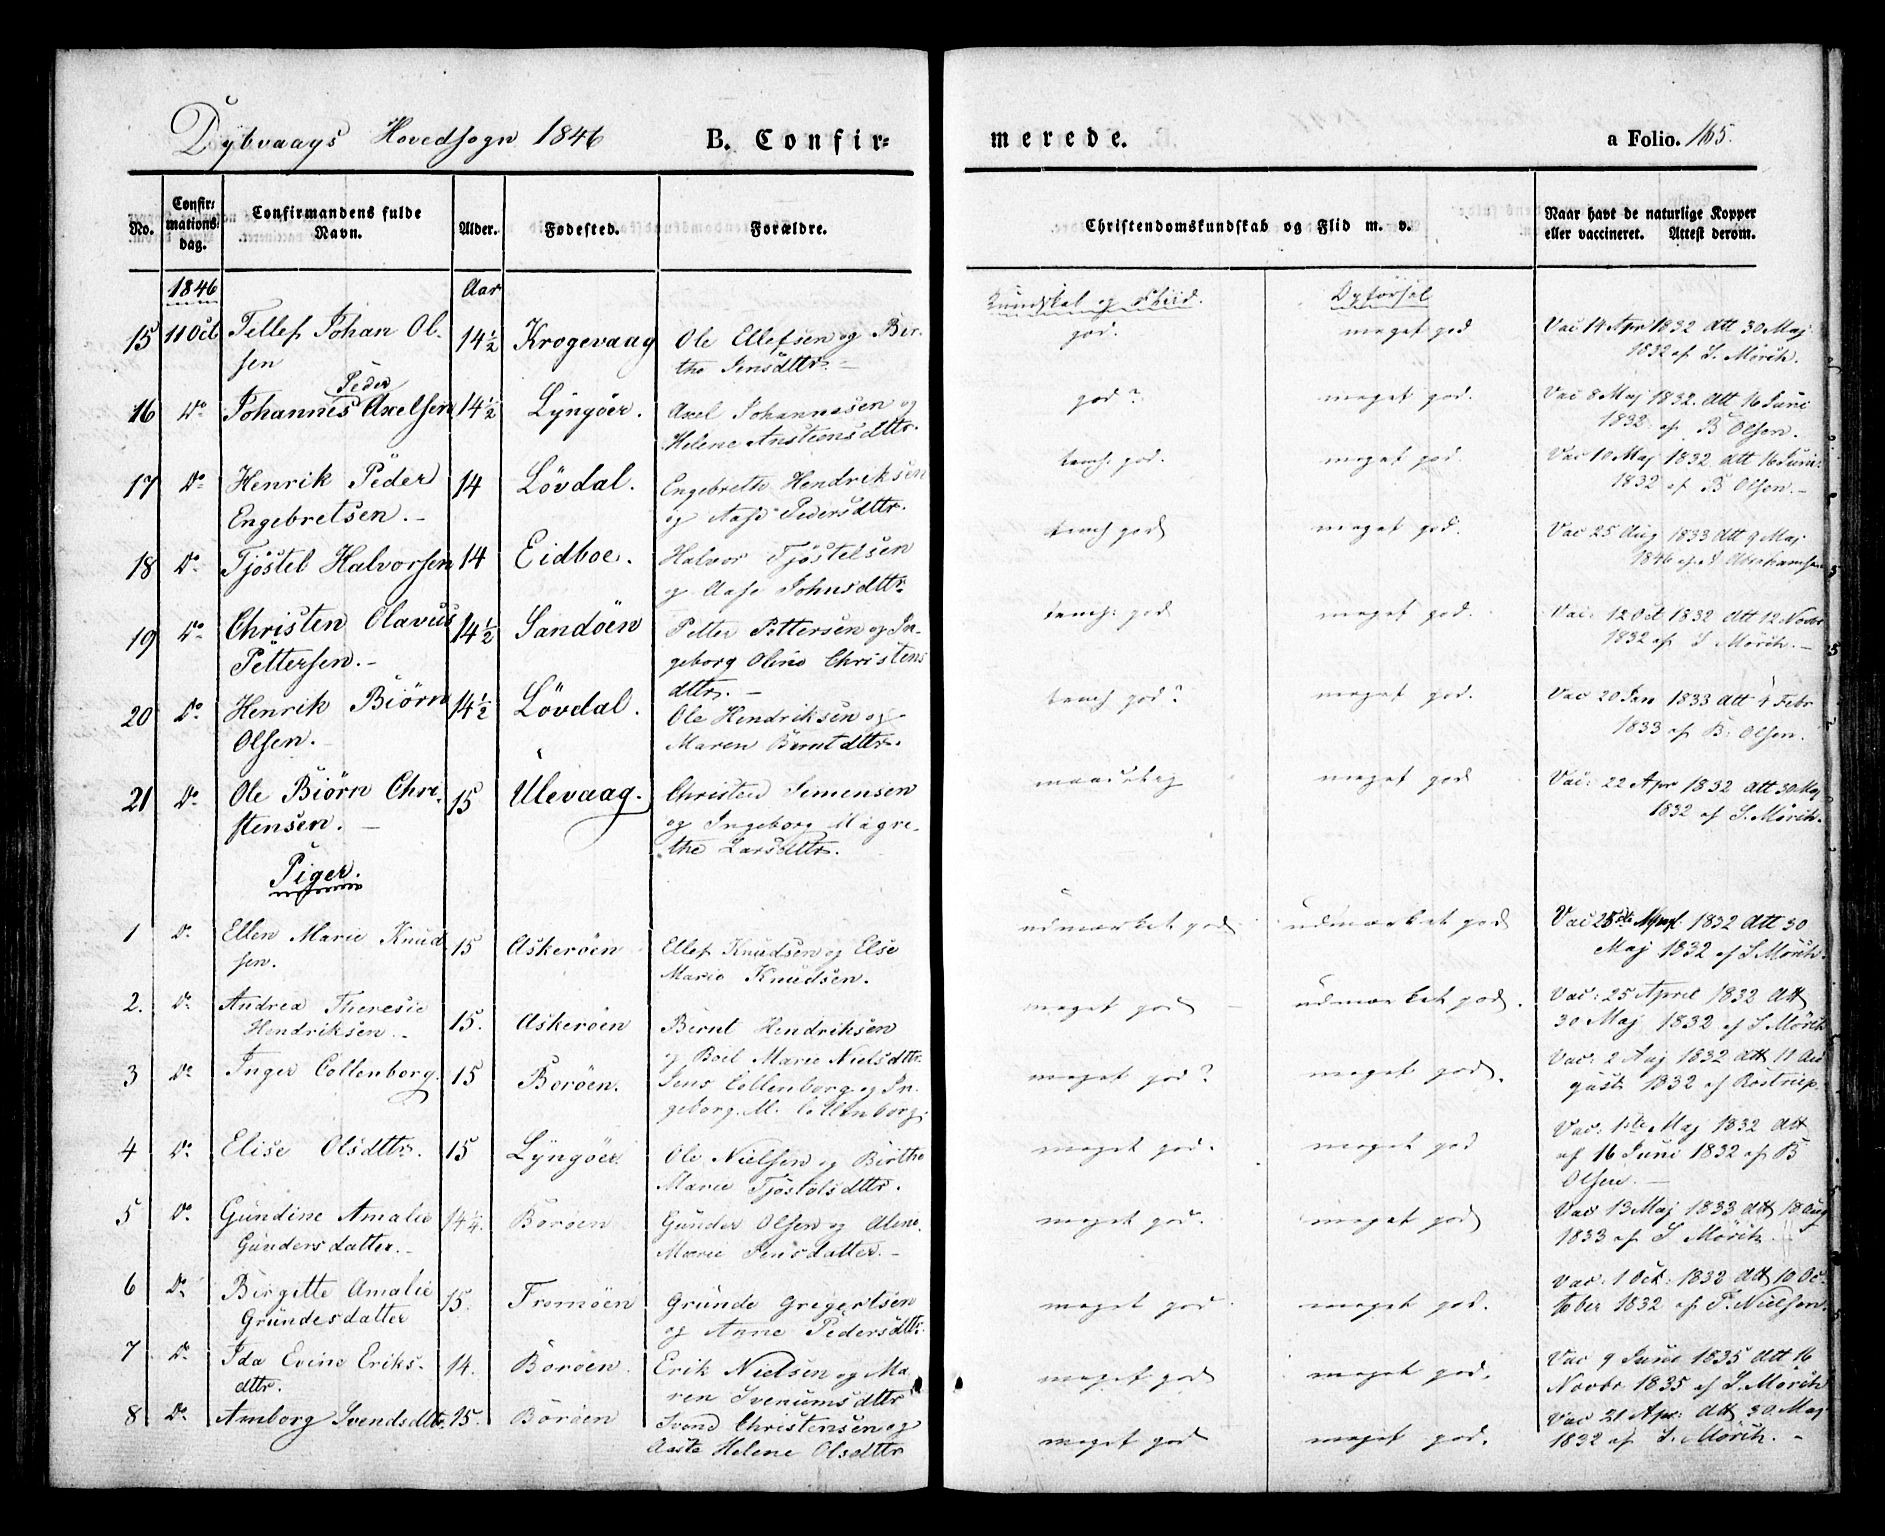 Dybvaags Hovedsogn 1846 B. Confir= merede. a Folio. 165.
No. Confir=mations=dag. Confirmandens fulde Navn. Alder. Fødested. Forældre. Christendomskundskab og Flid m. v. Naar havt de naturlige Kopper eller vaccineret. Attest derom.
1846 Aar Kundskab og Fliid. Opførsel
15 11 Oct Tellef Johan Ol- 14½ Krogevaag Ole Ellefsen og Bir- god. meget god Vac 14 Apr 1832 Att 30 Maj
sen the Jensdttr. 1832 af S. Mörch.
16 Do Johannes Peder Axelsen 14½ Lyngöer. Axel Johannesen og god? meget god. Vac 8 Maj 1832. Att 16 Juni
Helene Anstensdttr. 1832 af B Olsen.
17 Do Henrik Peder 14 Lövdal. Engebreth Hendriksen teml: god. meget god Vac 10 Maj 1832 Att 16 Juni
Engebretsen. og Aase Pedersdttr. 1832 af B Olsen.
18 Do Tjöstel Halvorsen 14 Eidboe. Halvor Tjöstelsen teml god meget god. Vac 25 Aug 1833 Att 9 Maj
og Aase Johnsdttr. 1846 af Abrahamsen
19 Do Christen Olavus 14½ Sandöen Petter Pettersen og In- teml: god meget god. Vac: 12 Oct 1832 Att 12 Novbr
Pettersen. geborg Oline Christens 1832 af S Mörch.
dttr.
20 Do Henrik Biörn 14½ Lövdal. Ole Hendriksen og teml god? meget god. Vac 20 Jan 1833 Att 4 Febr
Olsen. Maren Berntdttr. 1833 af B. Olsen.
21 Do Ole Biörn Chri- 15 Ulevaag. Christen Simensen maadelig meget god Vac: 22 Apr 1832 Att 30 Maj
stensen. og Ingeborg Magre- 1832 af S. Mörch.
the Larsdttr.
Piger.
1 Do Ellen Marie Knud 15 Askeröen Ellef Knudsen og Else udmærket god udmærket god Vac 25de April 1832 Att 30
sen. Marie Knudsen. Maj 1832 af S Mörch.
2. Do Andrea Theresie 15. Askeröen Bernt Hendriksen meget god udmærket god. Vac: 25 April 1832 Att
Hendriksen. og Boel Marie Nielsdttr. 30 Maj 1832 af S Mörch
3 Do Inger Collenborg. 15 Boröen. Jens Collenborg og In- meget god? meget god. Vac: 2 Aug 1832 Att 11 Au
geborg. M. Collenborg. gust 1832 af Rostrup.
4 Do Elise Olsdttr. 15 Lyngöer. Ole Nielsen og Birthe meget god. meget god Vac. 1ste Maj 1832 Att
Marie Tjöstolsdttr. af 16 Juni 1832 af B
Olsen.
5 Do Gundine Amalie 14¼. Boröen Gunder Olsen og Alene meget god. meget god Vac 13 Maj 1833 Att 18 Aug
Gundersdatter. Marie Jensdatter. 1833 af S Mörch
6 Do Birgitte Amalie 15. Tromöen Grunde Gregertsen meget god. meget god. Vac: 1 Oct: 1832 Att 10 Oc-
Grundesdatter og Anne Pedersdttr. tober 1832 af F. Nielsen.
7 Do Ida Evine Eriks- 14. Boröen. Erik Nielsen og Ma meget god meget god. Vac 9 Juni 1835 Att 16
dttr. ren Svenumsdttr Novbr 1835 af S. Mörch
8 Do Amborg Svendsdttr. 15. Boröen Svend Christensen og meget god meget god. Vac 21 Apr: Att 30 Maj
Aaste Helene Olsdttr 1832 af S. Mörch.